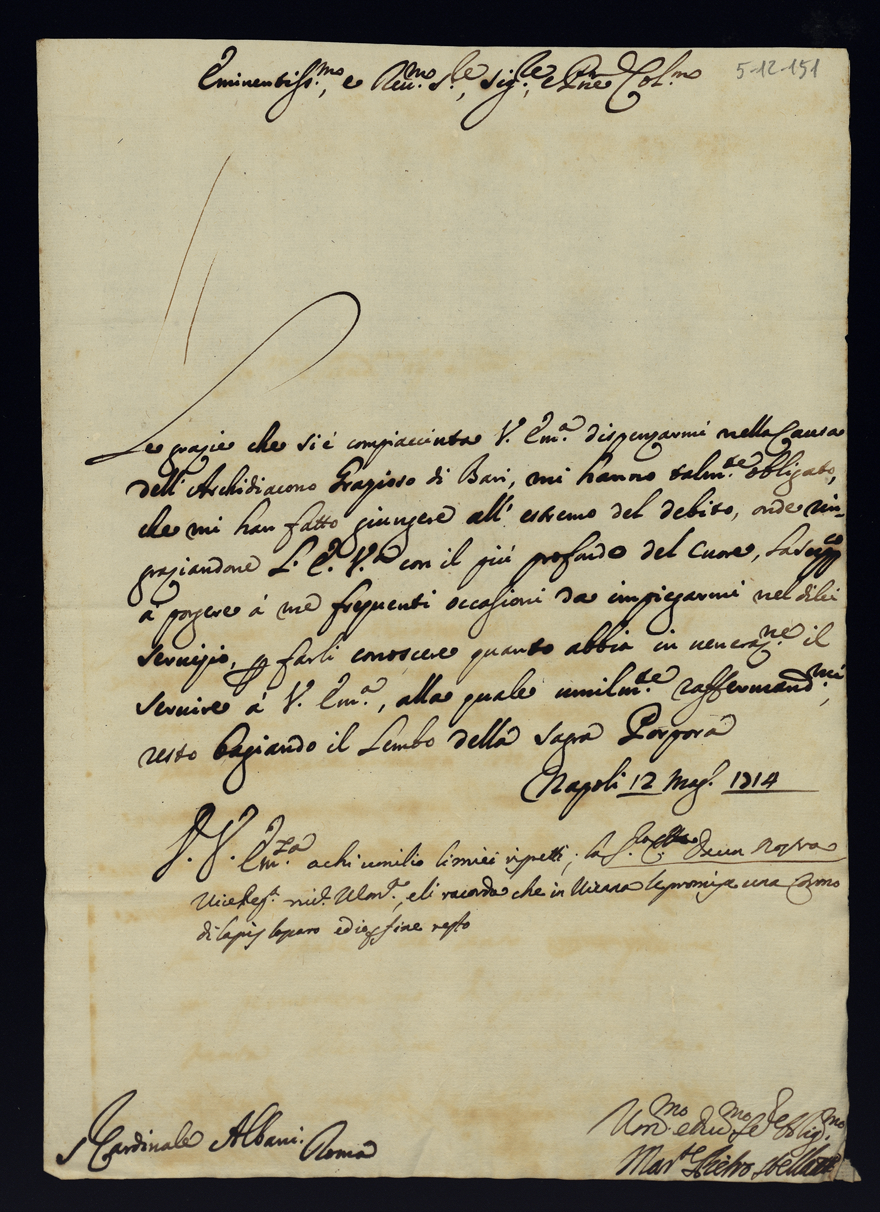 5-12-151
Eminentiss.mo, e Reu.mo S.re, Sig.re, e Pne Col.mo
Le grazie che si é compiacciuta V. Em.a dispenzarmi nella Causa
dell' Archidiacono Grazioso di Bari, mi hanno talm.te obligato,
che mi han fatto giungere all' estremo del debito, onde rin-
graziandone L. E. V.ra con il piú profondo del Cuore, la
á porgere á me frequenti occasioni da impiegarmi nel di lei
seruizio, p farli conoscere quanto abbia in uenera.ne il
seruire á V. Em.a, alla quale umilm.te raffermand.mi,
resto baziando il Lembo della Sagra Porpora
Napoli 12 Mag. 1714
V. Em.za a chi umilio li miei rispetti, la
e li racorda che in la promise una
di lapis lazaro ed resto
S Cardinale Albani. Roma
Um.mo e oblig.mo
Pietro